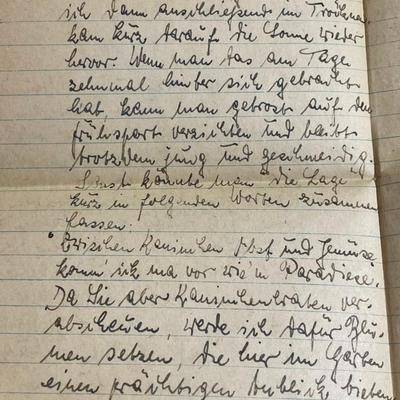 ich dann anschließend im Trocknen
kam kurz darauf die Sonne wieder
hervor. Wenn man das am Tage
zehnmal hinter sich gebracht
hat, kann man getrost auf den
Frühsport verzichten und bleibt
trotzdem jung und geschmeidig.
Sonst könnte man die Lage
kurz in folgenden Worten zusammen
fassen:
"Zwischen Kaninchen Obst und Gemüse
komm ich ma vor wie'n Paradiese.
Da Sie aber Kaninchenbraten ver-
abscheuen, werde ich dafür Blu-
men setzen, die hier im Garten
einen prächtigen Anblick bieten